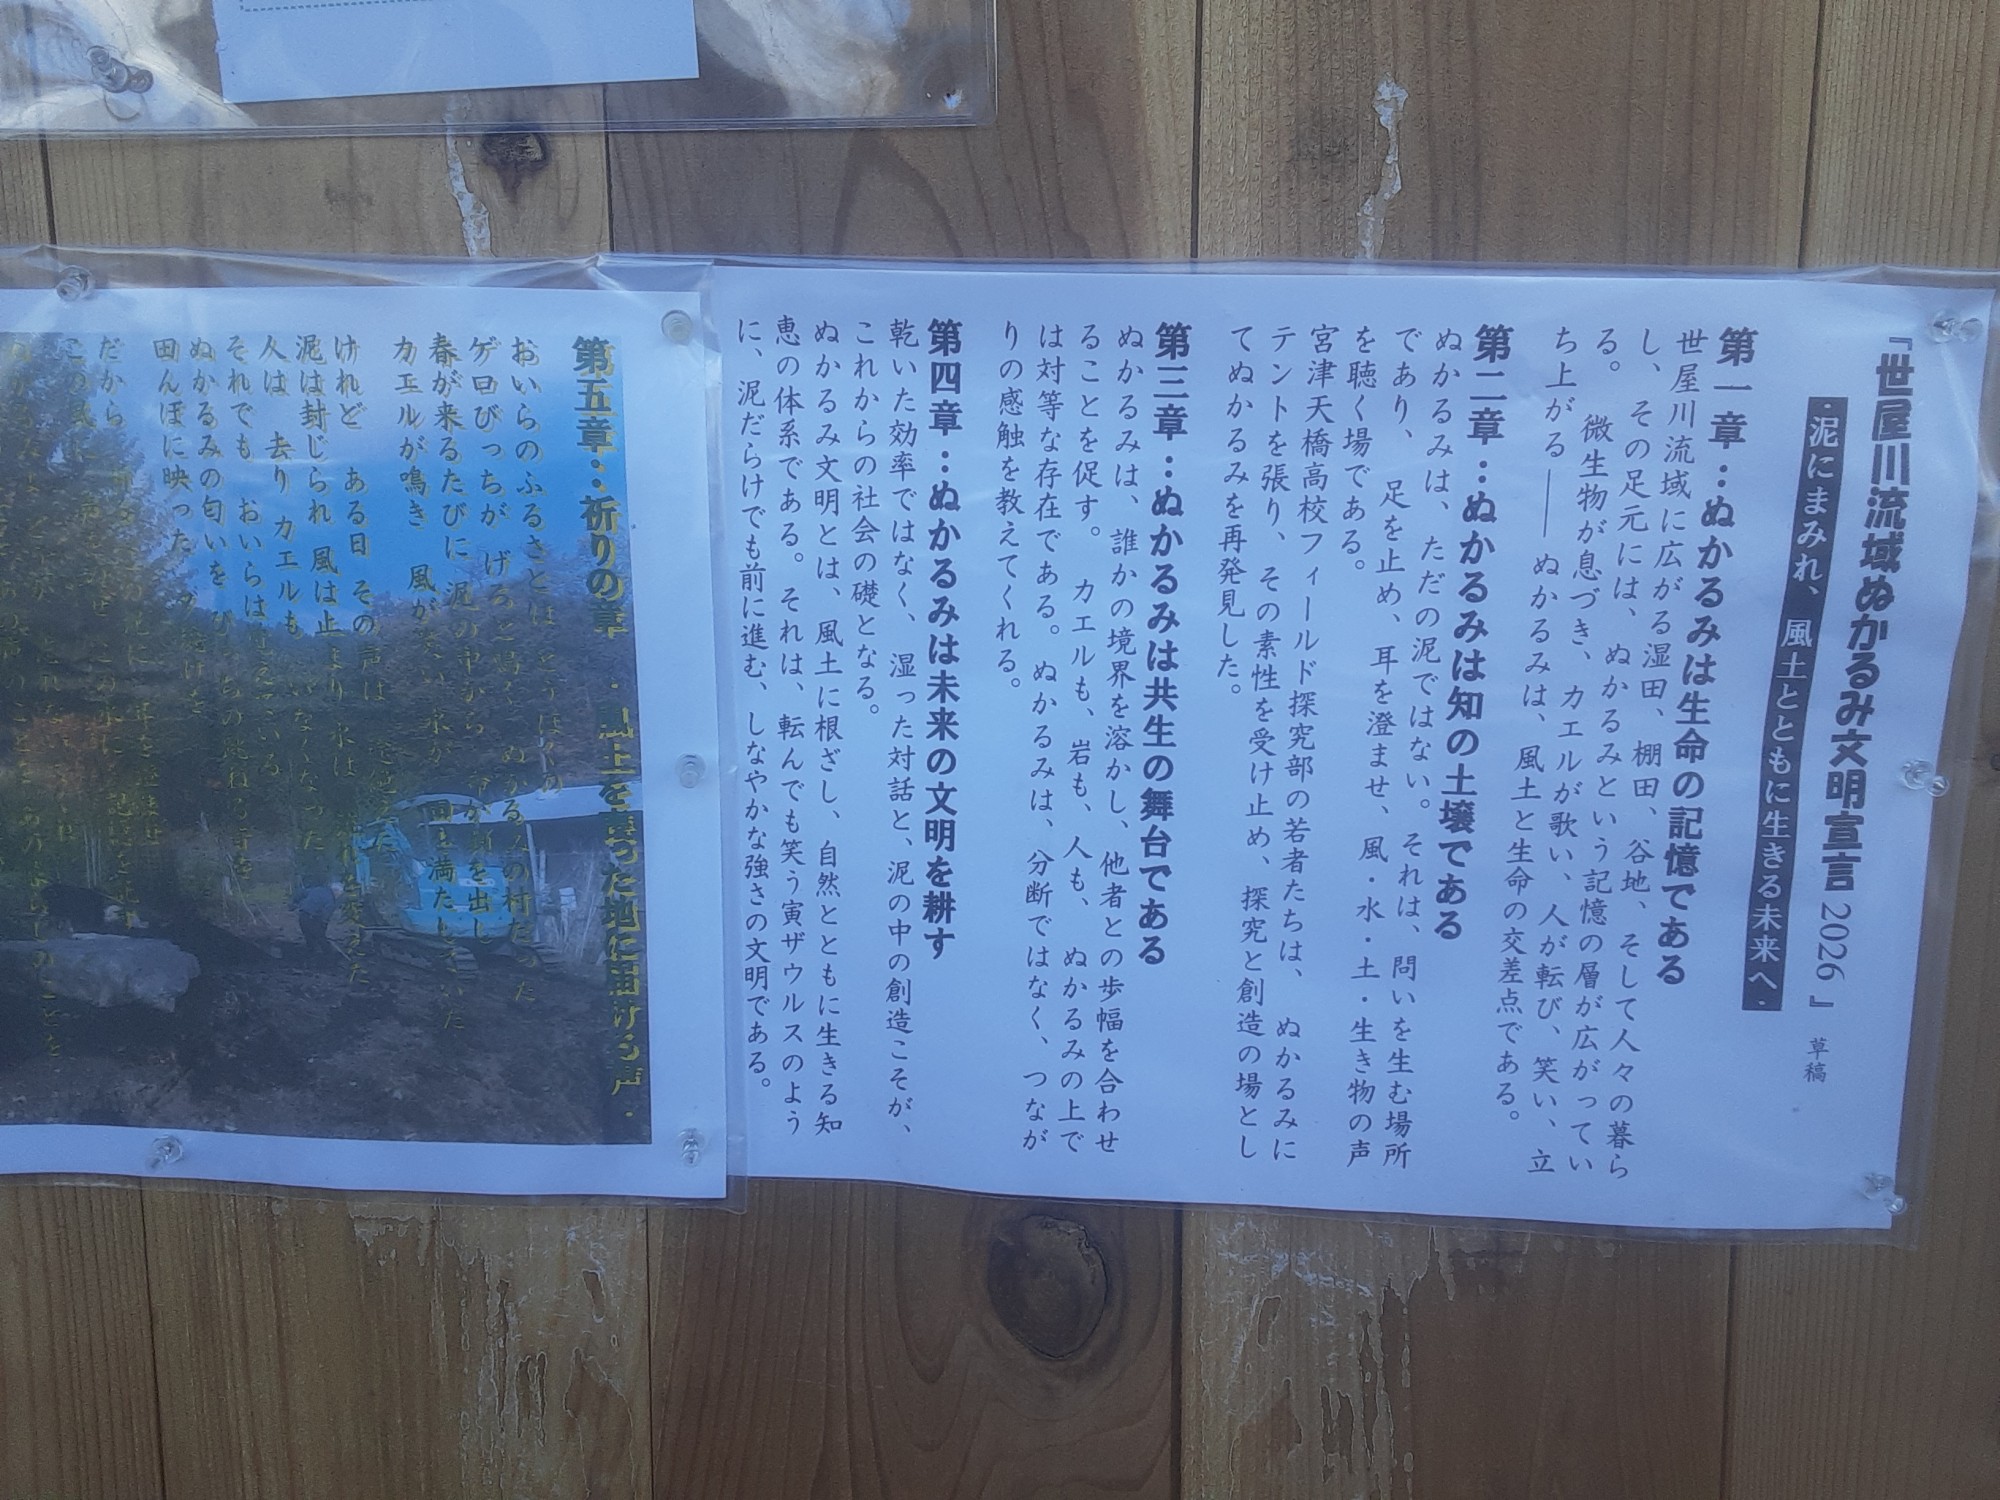 『世屋川流域ぬかるみ文明宣言2026』 草稿
・泥にまみれ、風土とともに生きる未来へ・
第一章：ぬかるみは生命の記憶である
世屋川流域に広がる湿田、棚田、谷地、そして人々の暮ら
し、その足元には、ぬかるみという記憶の層が広がってい
る。 微生物が息づき、カエルが歌い、人が転び、笑い、立
ち上がる――ぬかるみは、風土と生命の交差点である。
第二章：ぬかるみは知の土壌である
ぬかるみは、ただの泥ではない。それは、問いを生む場所
であり、足を止め、耳を澄ませ、風・水・土・生き物の声
を聴く場である。
宮津天橋高校フィールド探究部の若者たちは、ぬかるみに
テントを張り、その素性を受け止め、探究と創造の場とし
てぬかるみを再発見した。
第三章：ぬかるみは共生の舞台である
ぬかるみは、誰かの境界を溶かし、他者との歩幅を合わせ
ることを促す。 カエルも、岩も、人も、ぬかるみの上で
は対等な存在である。ぬかるみは、分断ではなく、つなが
りの感触を教えてくれる。
第四章：ぬかるみは未来の文明を耕す
乾いた効率ではなく、湿った対話と、泥の中の創造こそが、
これからの社会の礎となる。
ぬかるみ文明とは、風土に根ざし、自然とともに生きる知
恵の体系である。それは、転んでも笑う寅ザウルスのよう
に、泥だらけでも前に進む、しなやかな強さの文明である。
第五章：祈りの章 ・風土を った地に届ける声・
おいらのふるさとは
ゲロびっちが げろと ぬかるみの村だった
春が来るたびに 泥の中から 顔を出し
カエルが鳴き 風が 水が 田を満たしていた
けれど ある日 その声は
泥は封じられ 風は止まり 水は
人は 去り カエルも いなくなった
それでも おいらは
ぬかるみの匂いを の跳ねる音を
田んぼに映った
だから
この